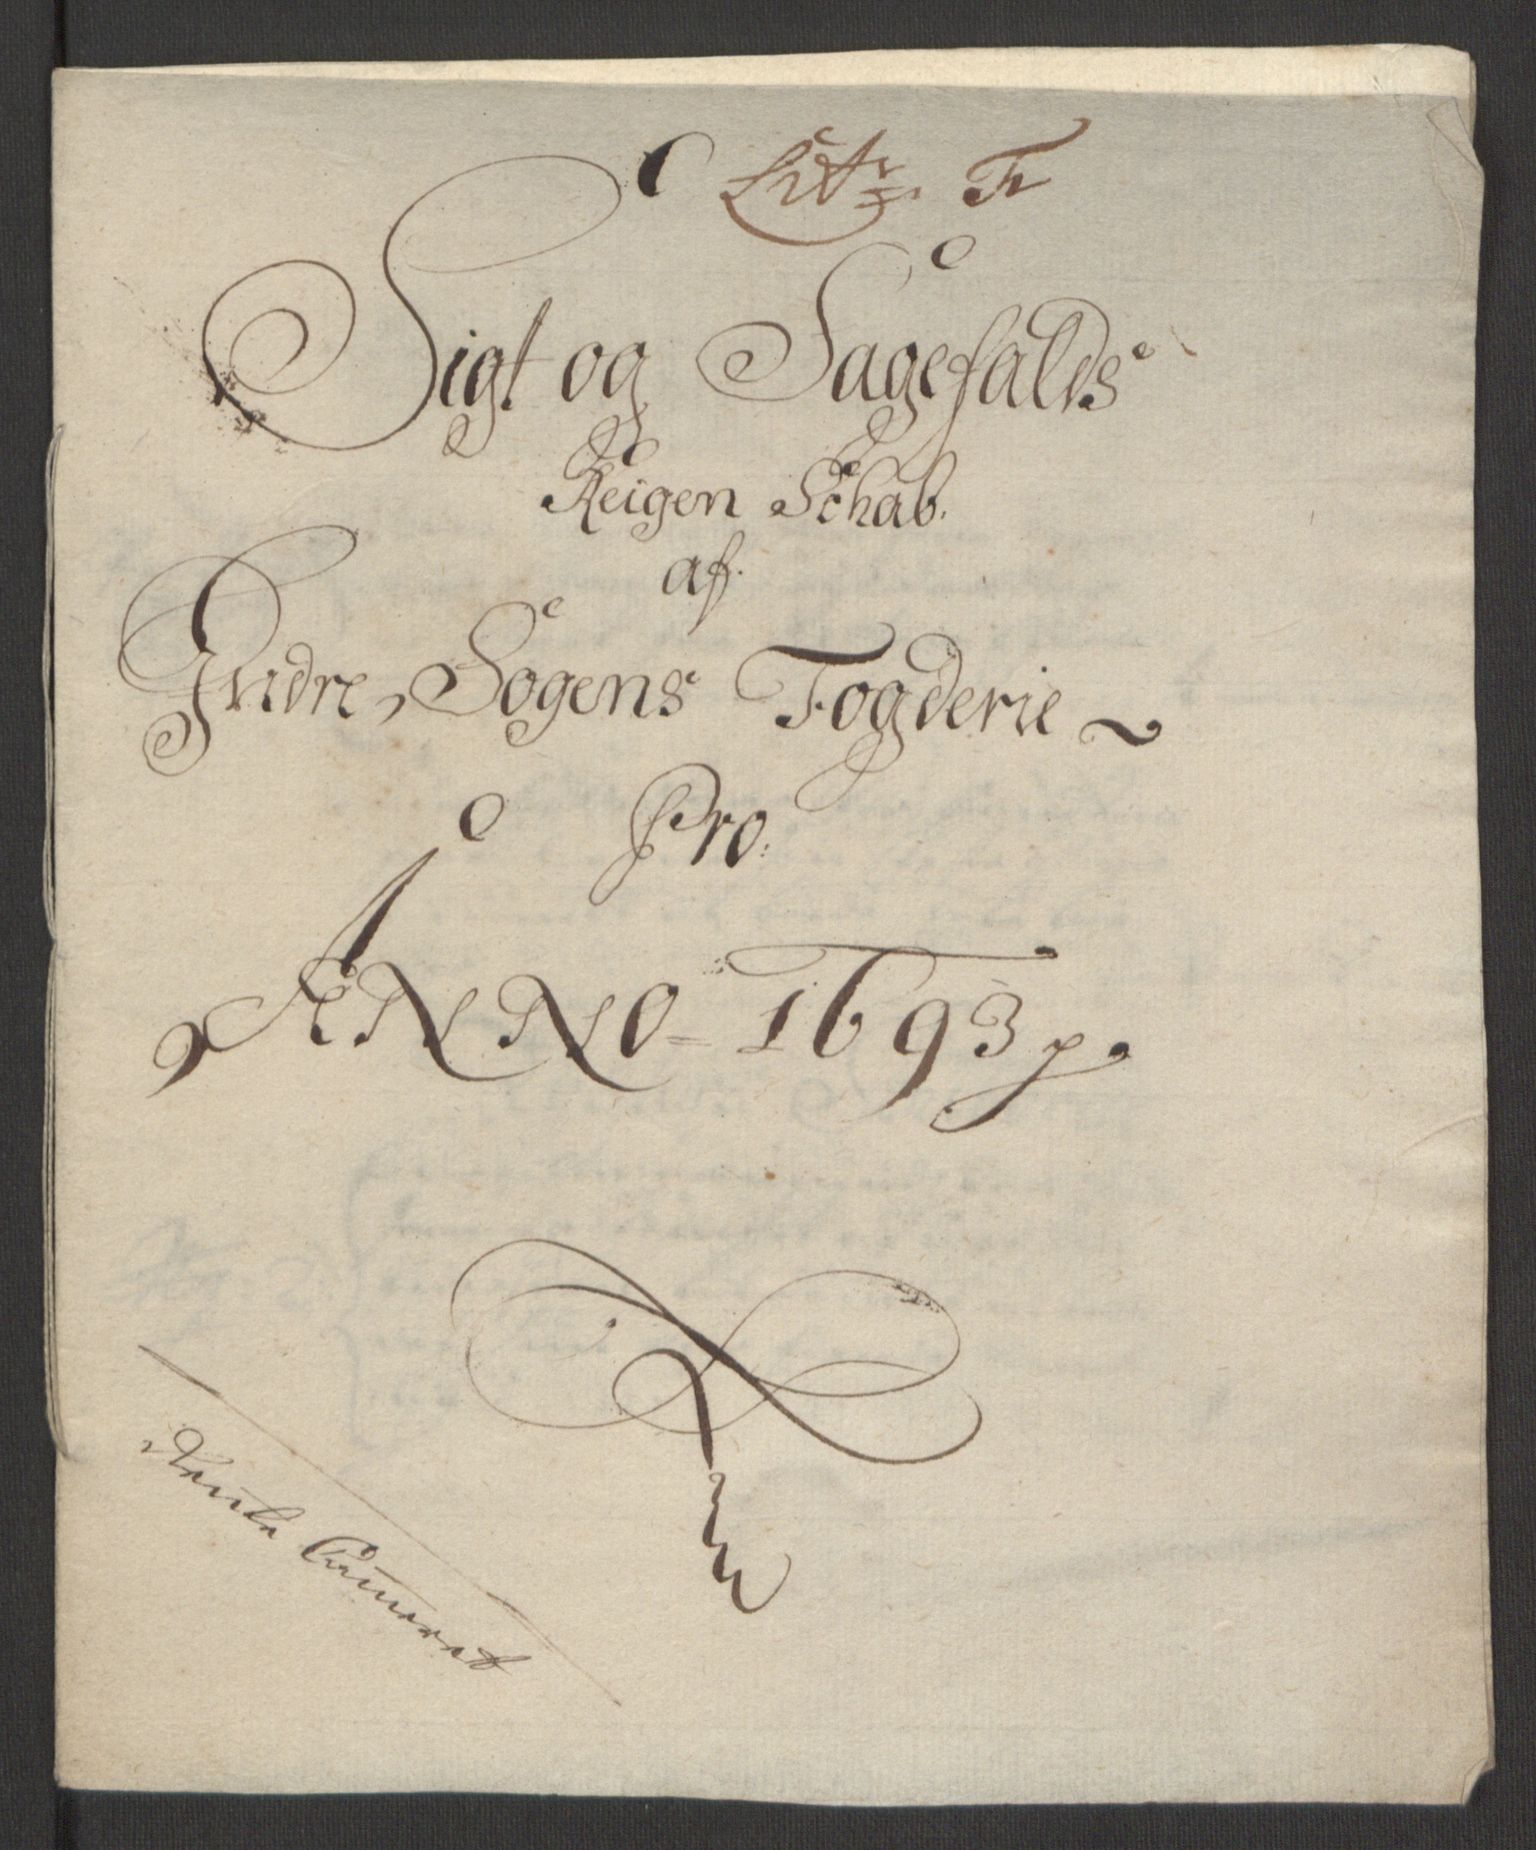 Litr: F
Sigt og Sagefalds
Reigen Schab.
af.
Indre Sogens Fogderie
Pro.
ANNO 1693 p.
Rente Cammeret